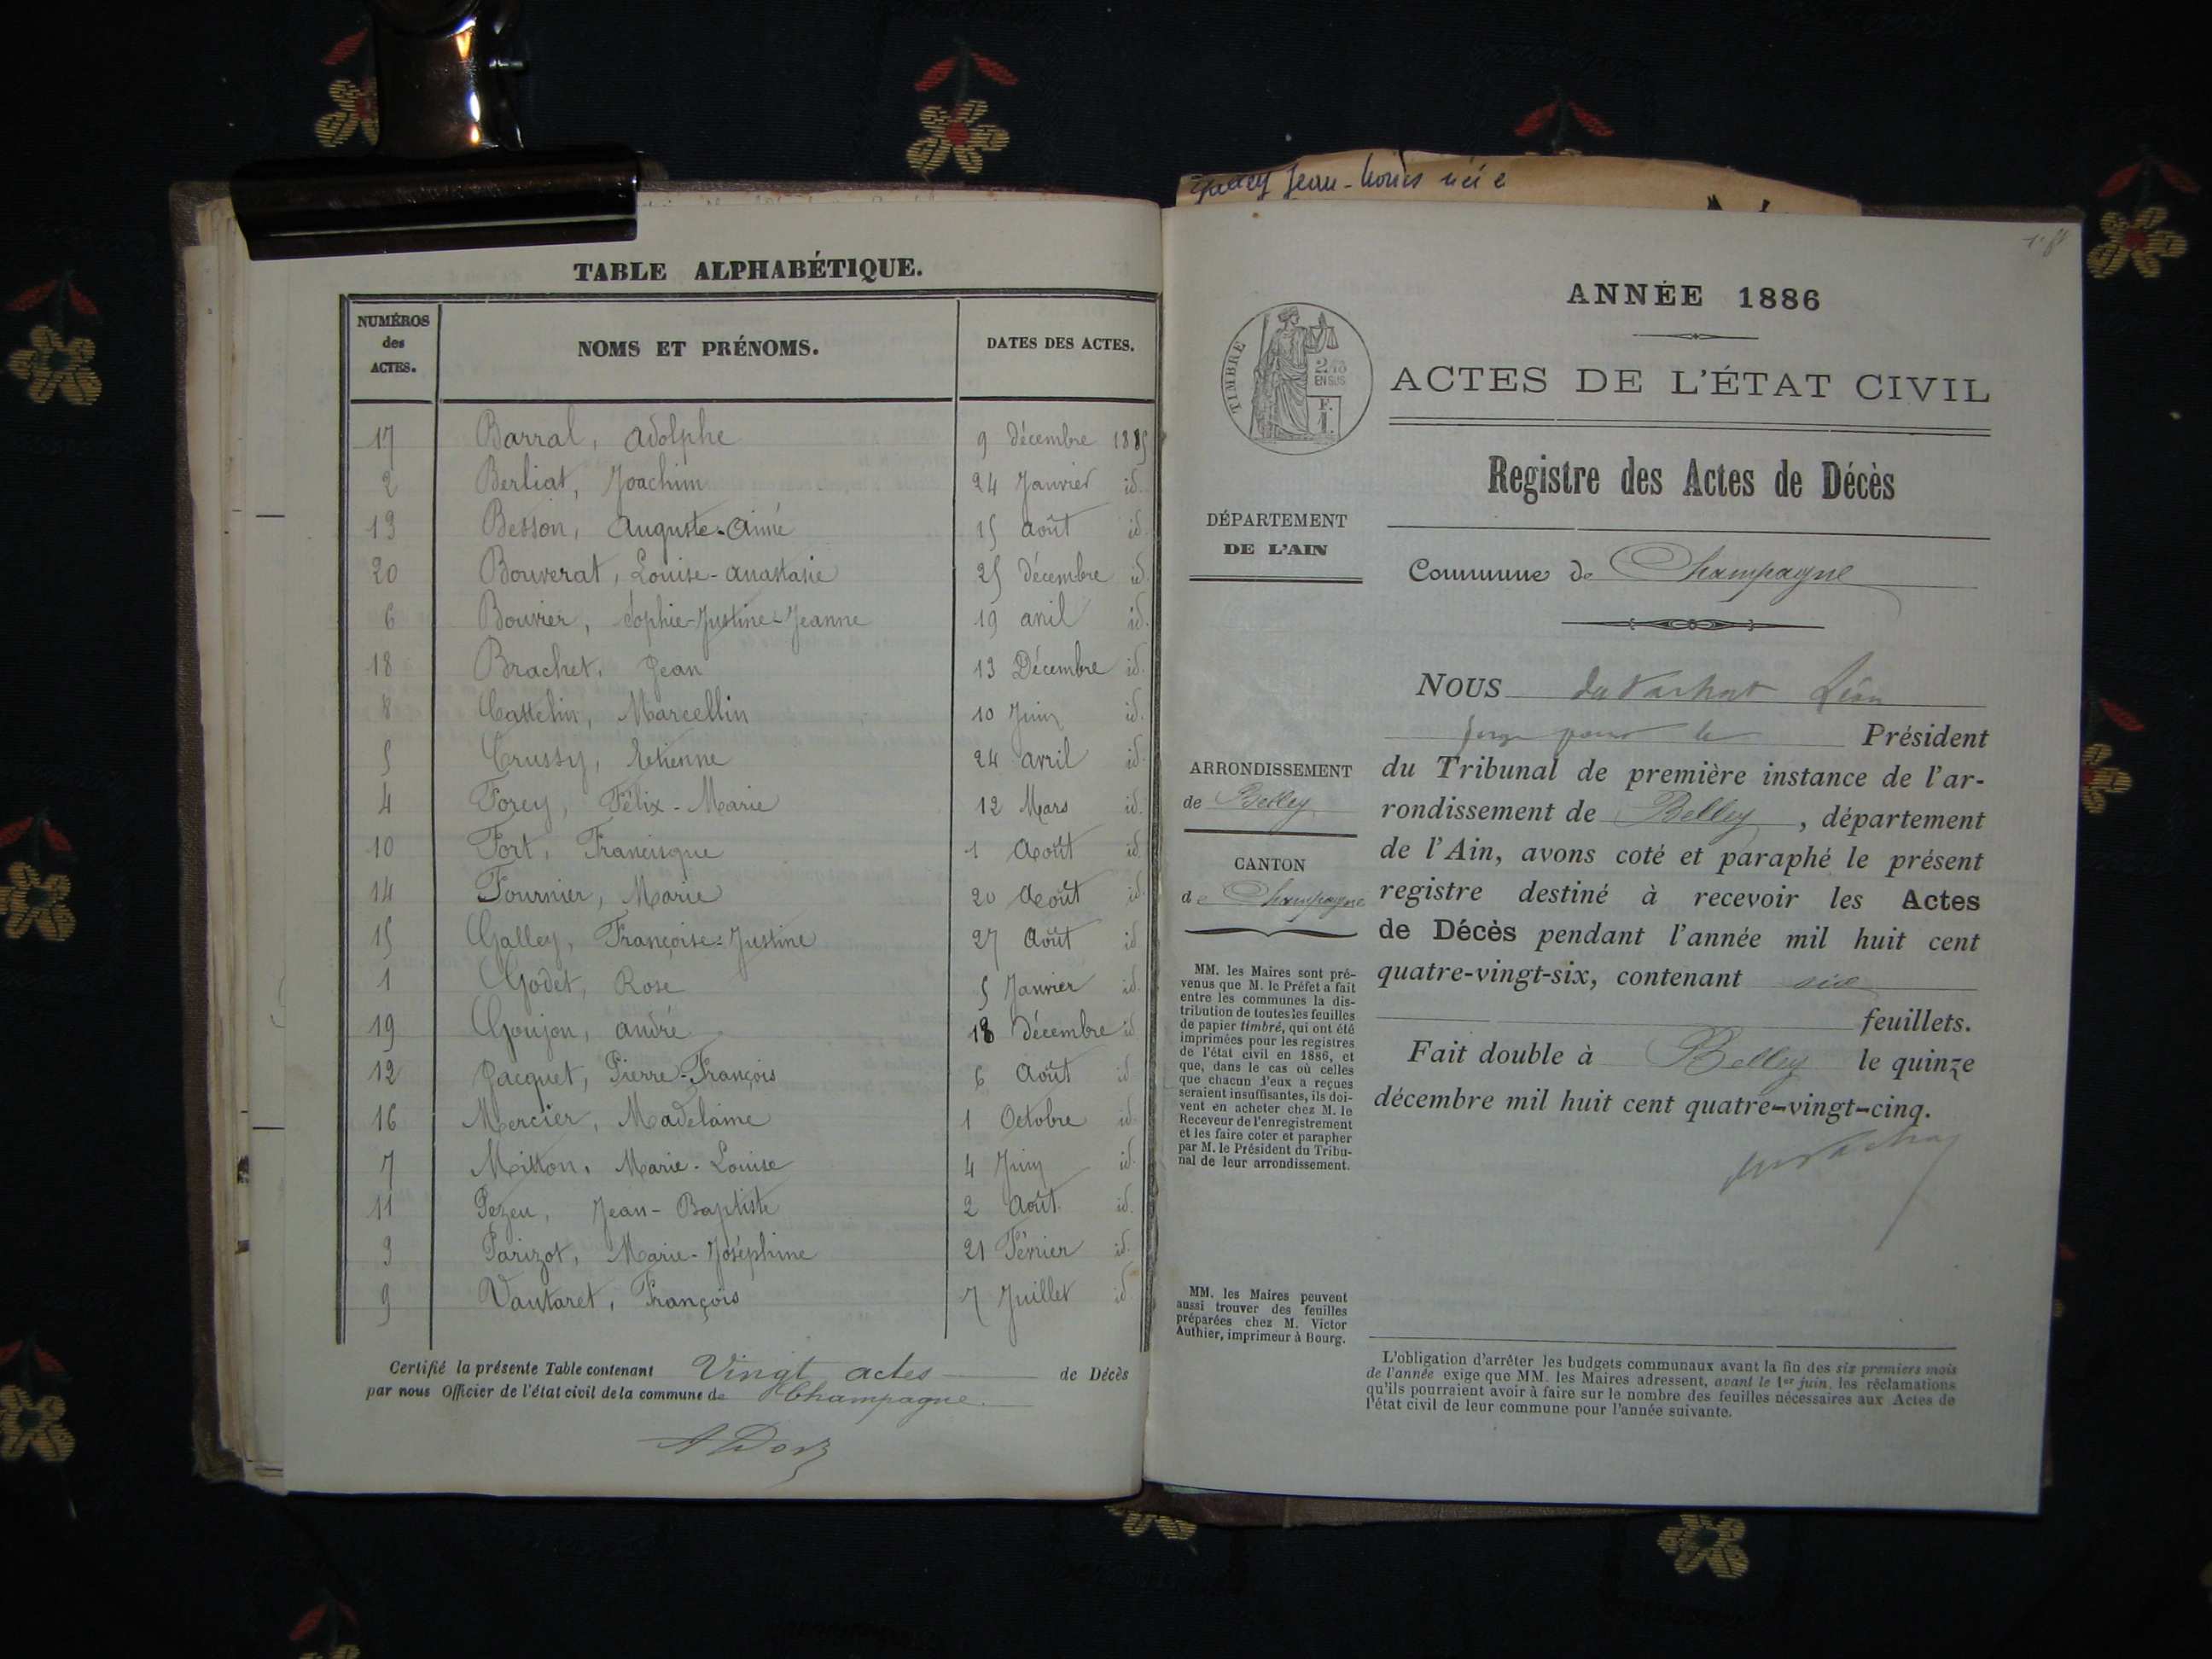 TABLE ALPHABÉTIQUE.
NUMÉROS des ACTES.
NOMS ET PRÉNOMS.
DATES DES ACTES.
17 Barral, Adolphe 9 Décembre 1885
2 Berliat, Joachim 24 Janvier id.
13 Besson, Auguste-Aimé 15 Août id.
20 Bouverat, Louise-Anastasie 25 Décembre id.
6 Bouvier, Sophie-Justine-Jeanne 19 avril id.
18 Brachet, Jean 13 Décembre id.
8 Cattelin, Marcellin 10 Juin id.
5 Crussy, Etienne 24 avril id.
4 Forey, Félix-Marie 12 Mars id.
10 Fort, Francisque 1 Août id.
14 Fournier, Marie 20 Août id.
15 Galley, Françoise-Justine 27 Août id
1 Godet, Rose 5 Janvier id.
19 Goujon, André 18 Décembre id
12 Jacquet, Pierre-François 6 Août id
16 Mercier, Madelaine 1 Octobre id.
7 Mitton, Marie-Louise 4 Juin id.
11 Pezeu, Jean-Baptiste 2 Août id.
3 Parizot, Marie-Joséphine 21 Février id.
9 Vautaret, François 7 Juillet id
Certifié la présente Table contenant Vingt actes de Décès
par nous Officier de l'état civil de la commune de Champagne.
Jean-Louis né e
ANNÉE 1886
TIMBRE
2/10
EN SUS
F.
1.
ACTES DE L'ÉTAT CIVIL
Registre des Actes de Décès
DÉPARTEMENT
DE L'AIN
Commune de Champagne
ARRONDISSEMENT
de Belley
CANTON
de Champagne
MM. les Maires sont pré-
venus que M. le Préfet a fait
entre les communes la dis-
tribution de toutes les feuilles
de papier timbré, qui ont été
imprimées pour les registres
de l'état civil en 1886, et
que, dans le cas où celles
que chacun d'eux a reçues
seraient insuffisantes, ils doi-
vent en acheter chez M. le
Receveur de l'enregistrement
et les faire coter et parapher
par M. le Président du Tribu-
nal de leur arrondissement.
MM. les Maires peuvent
aussi trouver des feuilles
préparées chez M. Victor
Authier, imprimeur à Bourg.
NOUS Léon
Juge pour le Président
du Tribunal de première instance de l'ar-
rondissement de Belley, département
de l'Ain, avons coté et paraphé le présent
registre destiné à recevoir les Actes
de Décès pendant l'année mil huit cent
quatre-vingt-six, contenant six
feuillets.
Fait double à Belley le quinze
décembre mil huit cent quatre-vingt-cinq.
L'obligation d'arrêter les budgets communaux avant la fin des six premiers mois
de l'année exige que MM. les Maires adressent, avant le 1er juin, les réclamations
qu'ils pourraient avoir à faire sur le nombre des feuilles nécessaires aux Actes de
l'état civil de leur commune pour l'année suivante.